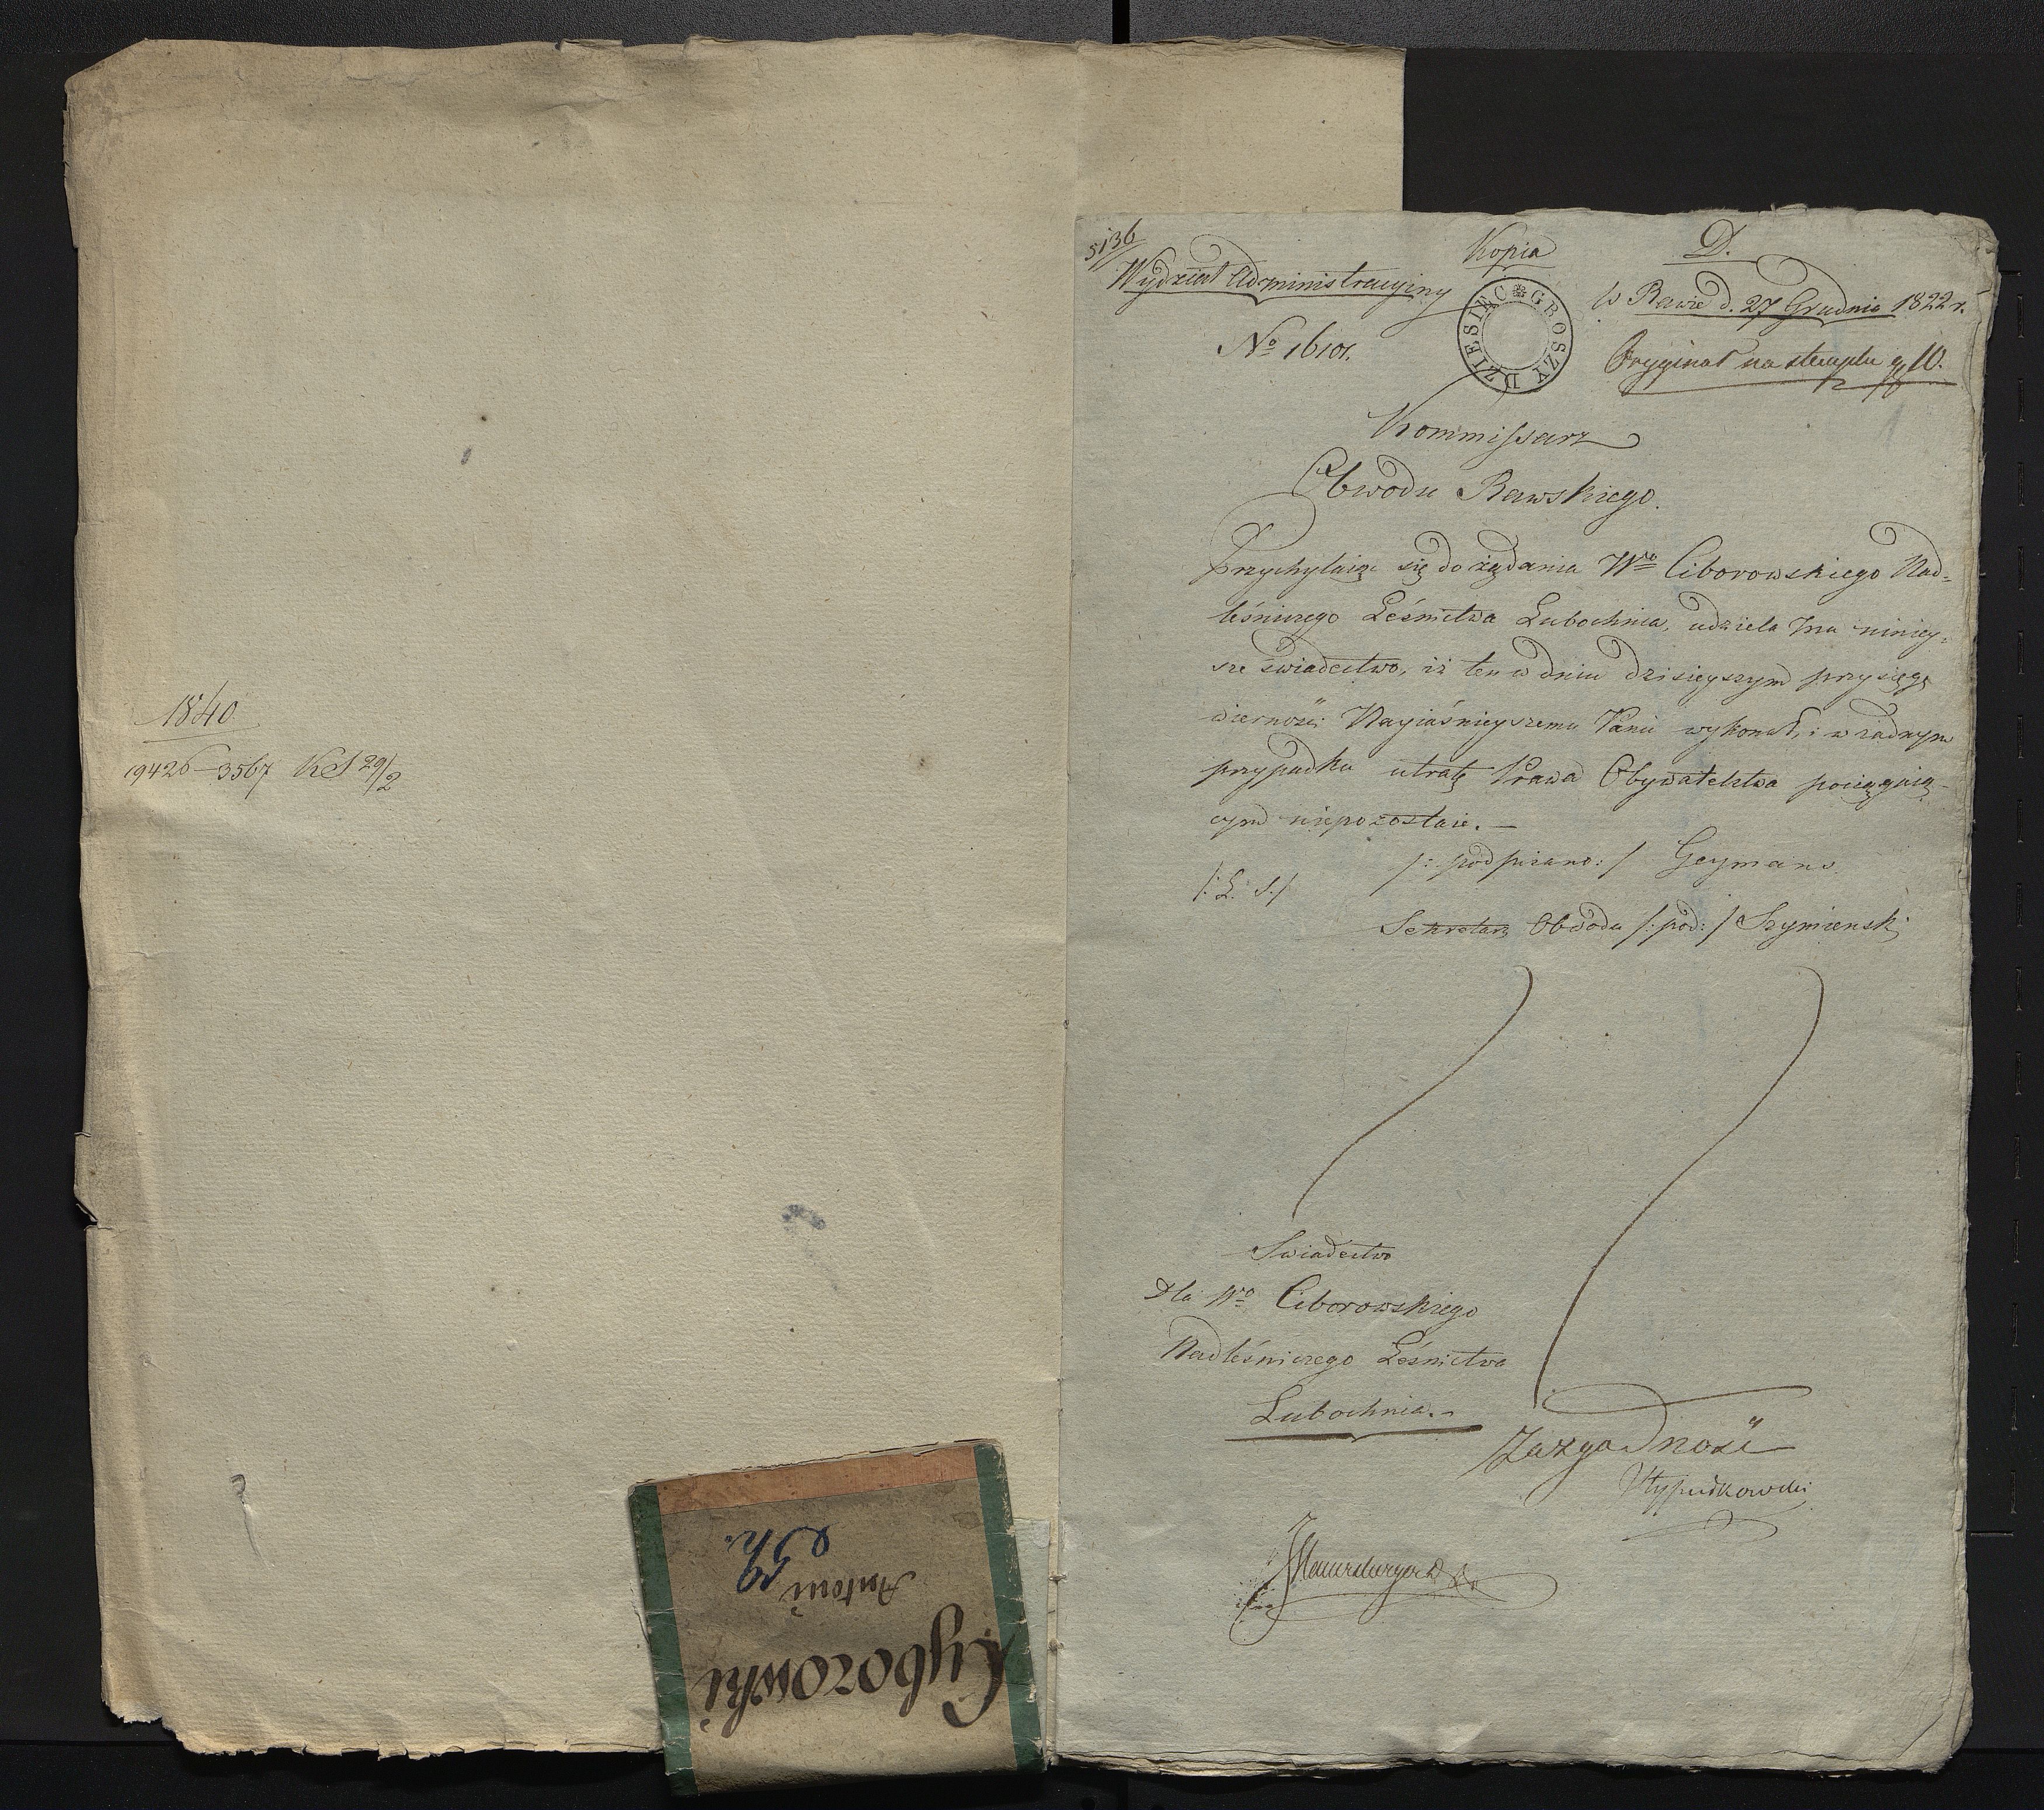 1840
19426—3567 KS 29/2
Cyborowski
Antoni
59
5136
Kopia
D.
Wydział Administracyiny
DZIESIĘC GROSZY
w Rawie d. 27 Grudnia 1822 r.
No 16101.
Oryginał na stemplu gr 10.
Kommissarz
Obwodu Rawskiego.
Przychylaiąc się do żądania Wgo Ciborowskiego Nad=
leśniczego Leśnictwa Lubochnia, udziela Mu niniey=
sze świadectwo, iż ten w dniu dzisieyszym przysięgę
wierności Nayiaśnieyszemu Panu wykonał, i w żadnym
przypadku utratę Prawa Obywatelstwa pociągaią-
cym niepozostaie.—
/: podpisano :/ Geymano
/: L. S:/
Sekretarz Obwodu /: pod: / Szymienski
Swiadectwo
Dla Wgo Ciborowskiego
Nadleśniczego Leśnictwa
Lubochnia.-
Za zgodność